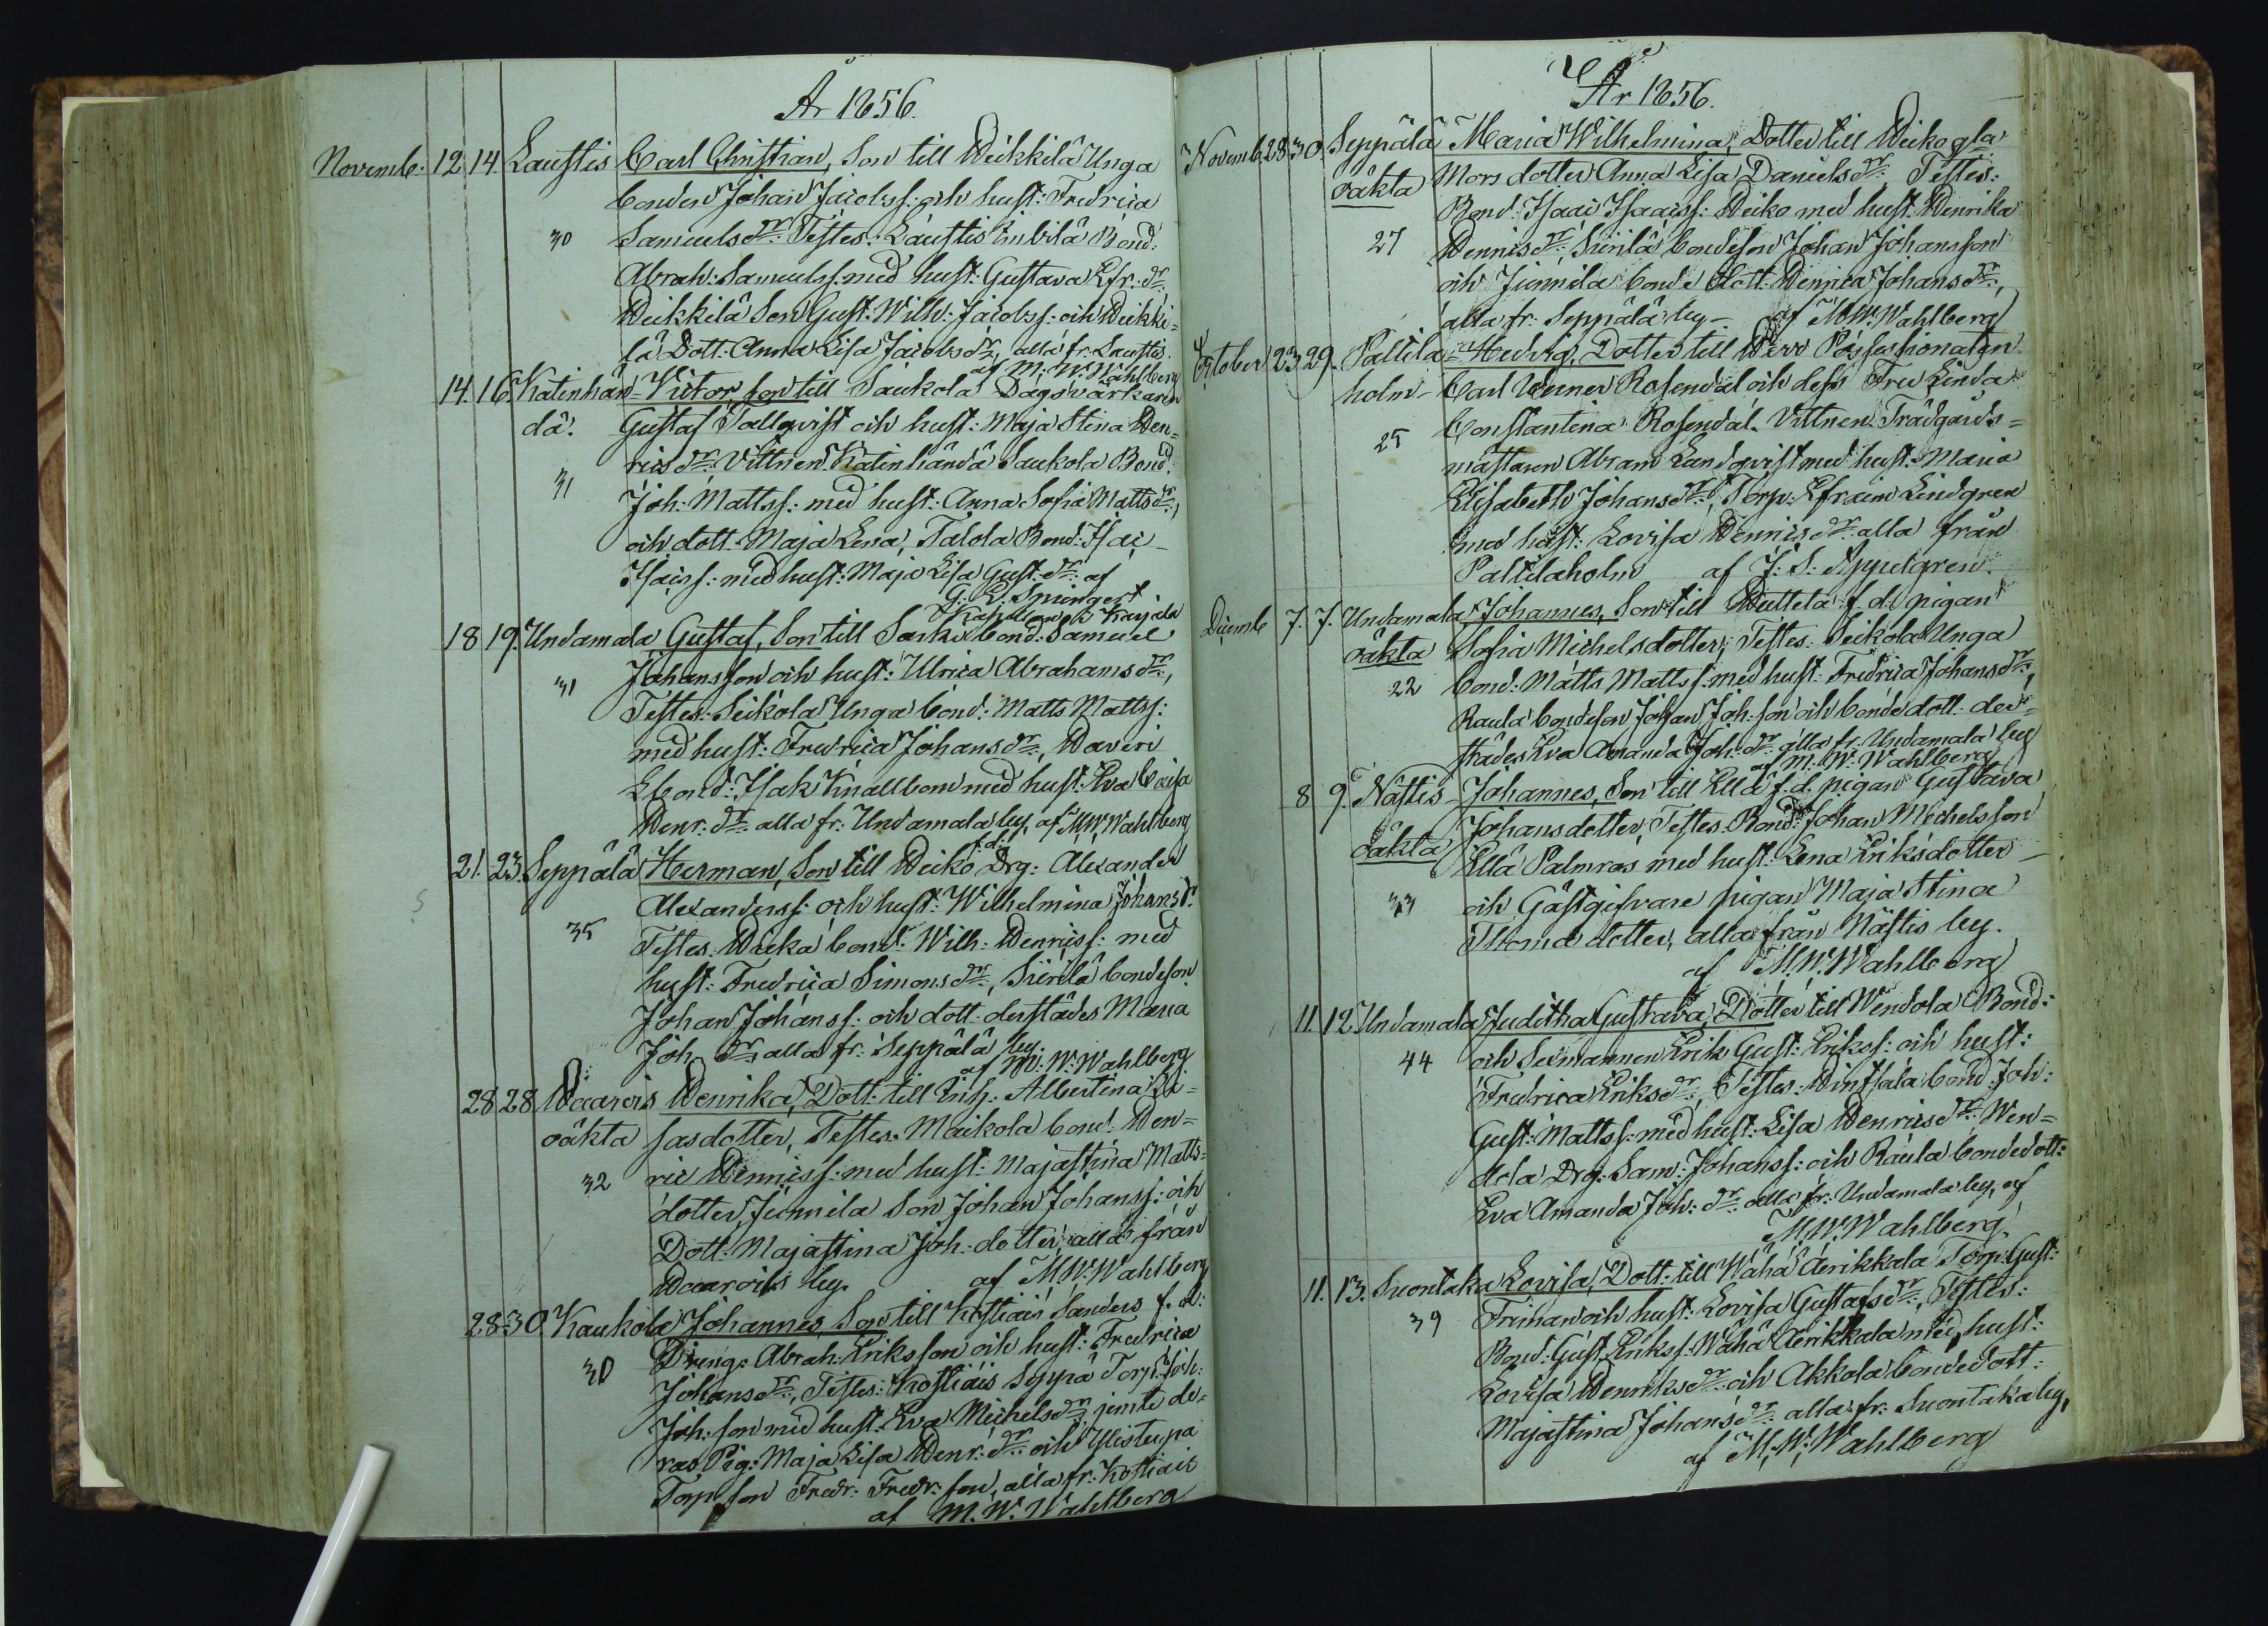 År 1856.
Novemb. 12 14. Laustis Carl Christian, Son till Heikkilä Unga
bonden Johan Jacobss: och hust: Fredrica
30 Samuelsdr: Testes: Laustis Bond:
Abrah: Samuelss: med hust: Gustava Efr: dr:
Heikkilä Son Gust: Wilh: Jacobss: och Heikki=
lä Dott: Anna Lisa Jacobsdr: alla fr: Laustis.
af M: W: Wahlberg
14. 16 Katinhän= Victor, son till Saukola Dagsvärkaren
dä. Gustaf Tallqvist och hust: Maja Stina Hen=
ricsdr: Vittnen: Katinhändä Saukola Bond:
31 Joh: Mattss: med hust: Anna Sofia Mattsdr:,
och dott. Maja Lena, Talola Bond: Isac
Isacss: med hust: Maja Lisa Gust: dr: af
G: E: Springert
Kapellan i Karjala
18 19. Undamala Gustaf, Son till Sarki bond: Samuel
Johansson och hust: Ulrica Abrahamsdr:,
31 Testes: Seikola Unga bond: Matts Mattss:
med hust: Fredrica Johansdr:, Daveri
bond: Isak Knallbom med hust: Eva Caisa
Henr: dr: alla fr: Undamala by, af M.W. Wahlberg
21. 23. Seppälä Herman, Son till Heiko f.d. Drg: Alexander
Alexanderss: och hust: Wilhelmina Johansd:
35 Testes. Heikä bond: Wilh: Henricss: med
hust: Fredrica Simonsdr:, Sierilä bondeson
Johan Johanss: och dott: derstädes Maria
Joh: dr: alla fr: Seppälä by.
af M: W: Wahlberg
28 28 Haarois Henrika, Dott: till Inh: Albertina
oäkta sasdotter, Testes. Maikola bond: Hen=
32 ric Henricss: med hust: Majastina Matts=
dotter, Junnila Son Johan Johanss: och
Dott: Majastina Joh: dotter, alla från
Haarois by. af M.W. Wahlberg
28 30 Kaukola Johannes, Son till Kostiais Sanders f. d:
30 Dreng: Abrah: Eriksson och hust: Fredrica
Johansdr:, Testes: Kostiais Seppä Torp: Joh:
Joh: son med hust: Eva Michelsdr: jemte de=
ras Pig: Maja Lisa Henr: dr: och Ylistupa
Torp: son Fredr: Fredr: son, alla fr: Kostiais
af M. W. Wahlberg
År 1856.
Novemb. 28 30. Seppälä Maria Wilhelmina, Dotter till Heiko gla
oäkta Mors dotter Anna Lisa Danielsdr: Testes:
Bond: Isaac Isaacss: Heiko med hust: Henrika
27 Henricsdr:, Sierilä bondeson Johan Johansson
och Junnila bonde dott: Henrica Johansdr:,
alla fr: Seppälä by. af M.W. Wahlberg
October 23 29. Paltila= Hedvig, Dotter till Herr Possessionaten
holm Carl Verner Rosendal och dess Fru Linda
25 Constantina Rosendal. Vittnen: Trädgårds=
mästaren Abram Landqvist med hust: Maria
Elisabeth Johansdr:, Torp: Efraim Lindgren
med hust: Lovisa Henricsdr: alla från
Paltilaholm af J: S: Appelgren.
Decemb 7. 7. Undamala Johannes, Son till Huttela f.d. pigan
oäkta Sofia Michelsdotter, Testes: Seikola Unga
22 bond: Matts Mattss: med hust: Fredrica Johansdr:,
Raula bondeson Johan Joh: son och bonde dott: der=
städes Eva Amanda Joh: dr: alla fr: Undamala by
af M. W. Wahlberg
8 9. Nästis Johannes, Son till Ellä f. d. pigan Gustava
Johansdotter, Testes. Bond: Johan Michelsson
oäkta Ellä Palmros med hust: Lena Eriksdotter
33 och Gästgifvare pigan Maja Stina
Thomædotter, alla från Nästis by.
af M. W. Wahlberg
11. 12 Undamala Juditha Gustava, Dotter till Wendola Bond:
44 och Sexmannen Erik Gust: Erikss: och hust:
Fredrica Eriksdr:, Testes: Hinsala bond: Joh:
Gust: Mattss: med hust: Lisa Henricsdr: Wen=
dola Drg: Sam: Johanss: och Raula bondedott:
Eva Amanda Joh: dr: alla fr: Undamala by, af
M.W. Wahlberg.
11. 13. Suontaka Lovisa, Dott: till Wähä Äirikkala Torp: Gust:
39 Friman och hust: Lovisa Gustafsdr:, Testes:
Bond: Gust: Erikss: Wähä Äirikkala med hust:
Lovisa Henriksdr: och Akkola bondedott:
Majastina Johansdr: alla fr: Suontaka by,
af M. W. Wahlberg